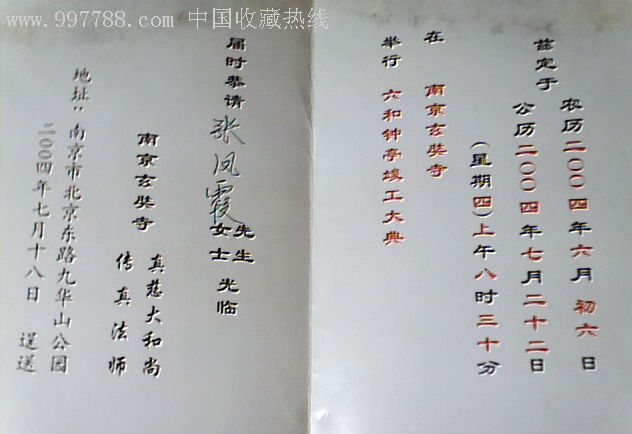 www.997788.com 中国收藏热线
兹定于
农历二00四年六月初六日
公历二00四年七月二十二日
(星期四)上午八时三十分
在 南京玄奘寺
举行 六和钟亭竣工大典
届时恭请 张凤霞 先生女士 光临
南京玄奘寺
真慈大和尚
传真法师
地址:南京市北京东路九华山公园
二00四年七月十八日 谨送